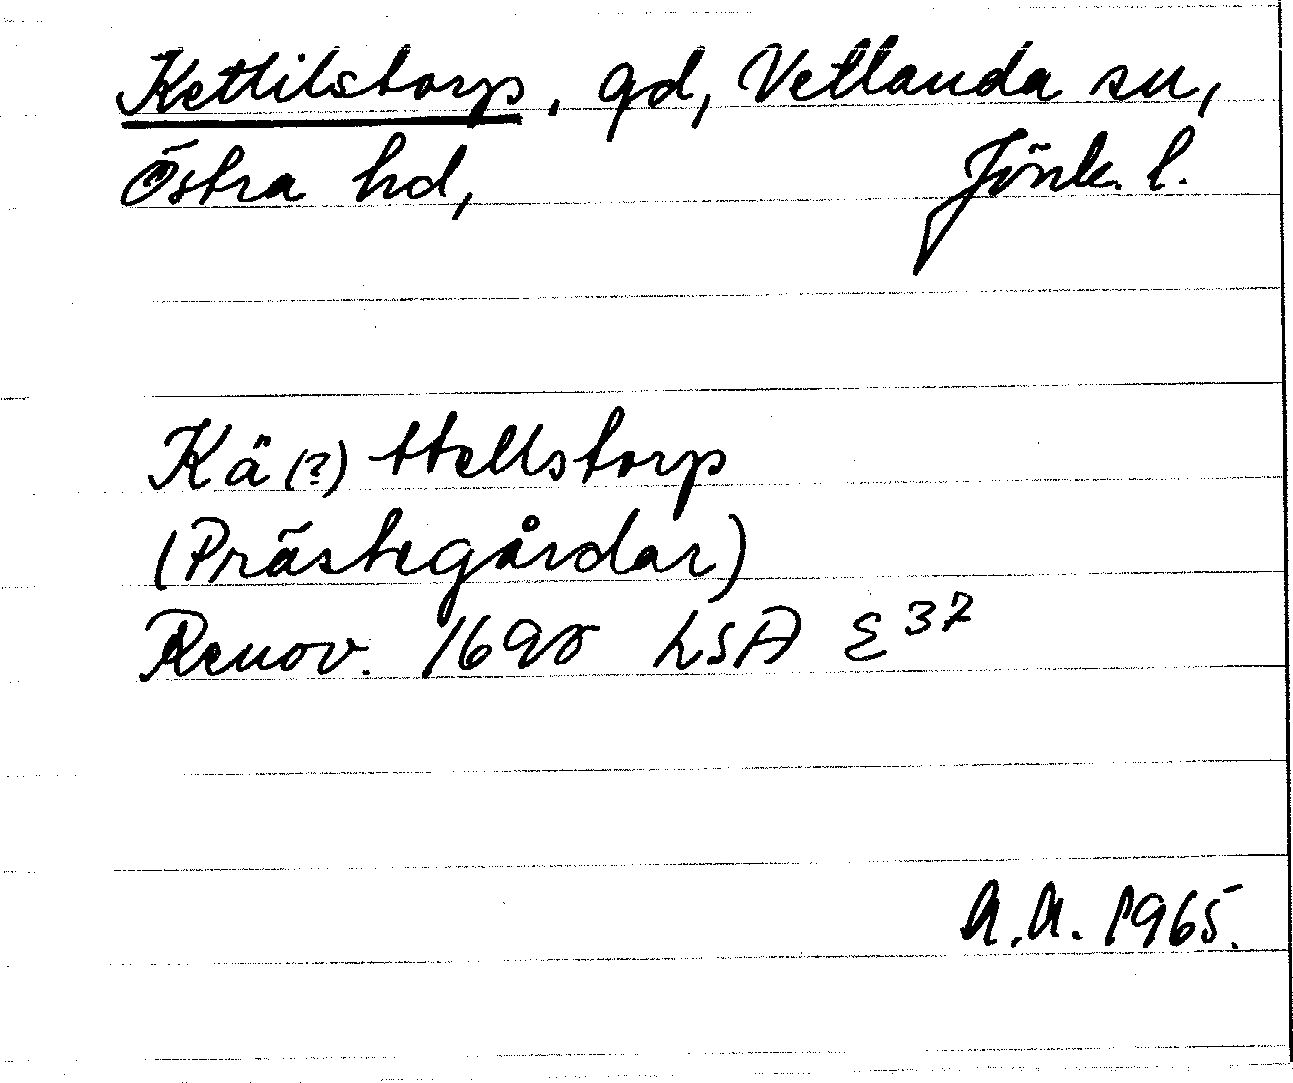 Kettilstorp, gd, Vetlanda sn,
Östra hd, Jönk. l.
Kä(?)ttellstorp
(Prästegårdar)
Renov. 1698 LSA E 37
A.A. 1965.